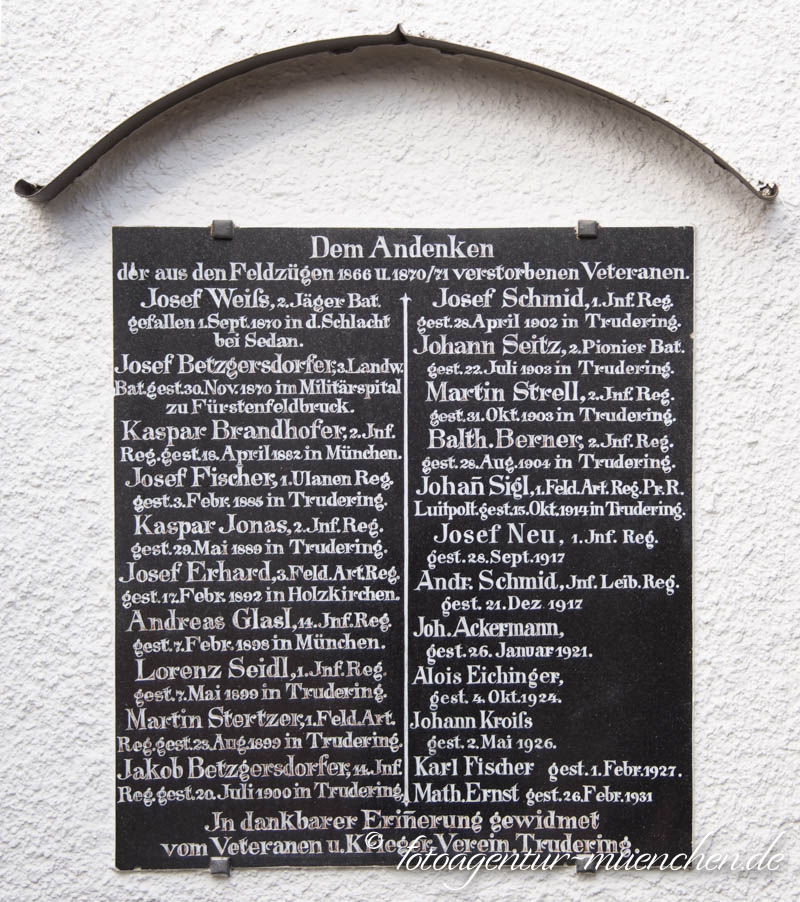 Dem Andenken
der aus den Feldzügen 1866 u. 1870/71 verstorbenen Veteranen.
Josef Weiſs, 2. Jäger Bat.
gefallen 1. Sept. 1870 in d. Schlacht
bei Sedan.
Josef Betzgersdorfer, 3. Landw.
Bat. gest. 30. Nov. 1870 im Militärspital
zu Fürstenfeldbruck.
Kaspar Brandhofer, 2. Jnf.
Reg. gest. 18. April 1882 in München.
Josef Fischer, 1. Ulanen Reg.
gest. 3. Febr. 1885 in Trudering.
Kaspar Jonas, 2. Jnf. Reg.
gest. 29. Mai 1889 in Trudering.
Josef Erhard, 3. Feld. Art. Reg.
gest. 17. Febr. 1892 in Holzkirchen.
Andreas Glasl, 14. Jnf. Reg.
gest. 7. Febr. 1898 in München.
Lorenz Seidl, 1. Jnf. Reg.
gest. 7. Mai 1899 in Trudering.
Martin Stertzer, 1. Feld. Art.
Reg. gest. 23. Aug. 1899 in Trudering.
Jakob Betzgersdorfer, 14. Jnf.
Reg. gest. 20. Juli 1900 in Trudering.
Josef Schmid, 1. Jnf. Reg.
gest. 28. April 1902 in Trudering.
Johann Seitz, 2. Pionier Bat.
gest. 22. Juli 1903 in Trudering.
Martin Strell, 2. Jnf. Reg.
gest. 31. Okt. 1903 in Trudering.
Balth. Berner, 2. Jnf. Reg.
gest. 28. Aug. 1904 in Trudering.
Johan̄ Sigl, 1. Feld. Art. Reg. Pr. R.
Luitpolt. gest. 15. Okt. 1914 in Trudering.
Josef Neu, 1. Jnf. Reg.
gest. 28. Sept. 1917
Andr. Schmid, Jnf. Leib. Reg.
gest. 21. Dez. 1917
Joh. Ackermann,
gest. 26. Januar 1921.
Alois Eichinger,
gest. 4. Okt. 1924.
Johann Kroiſs
gest. 2. Mai 1926.
Karl Fischer gest. 1. Febr. 1927.
Math. Ernst gest. 26. Febr. 1931
Jn dankbarer Erin̄erung gewidmet
vom Veteranen u. Krieger-Verein, Trudering.
© fotoagentur-muenchen.de